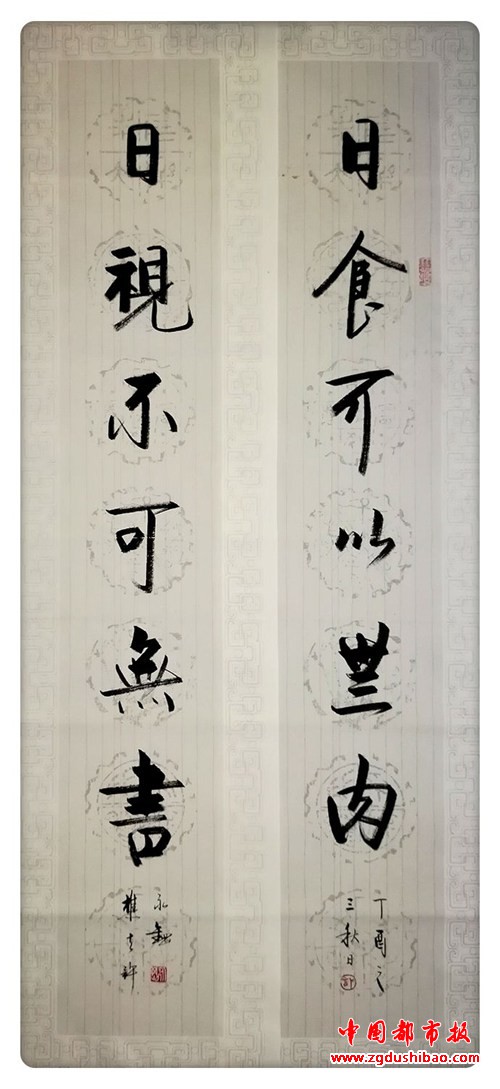 日食可以無肉
丁酉之
三秋日
日視不可無書
永
中国都市报
www.zgdushibao.com